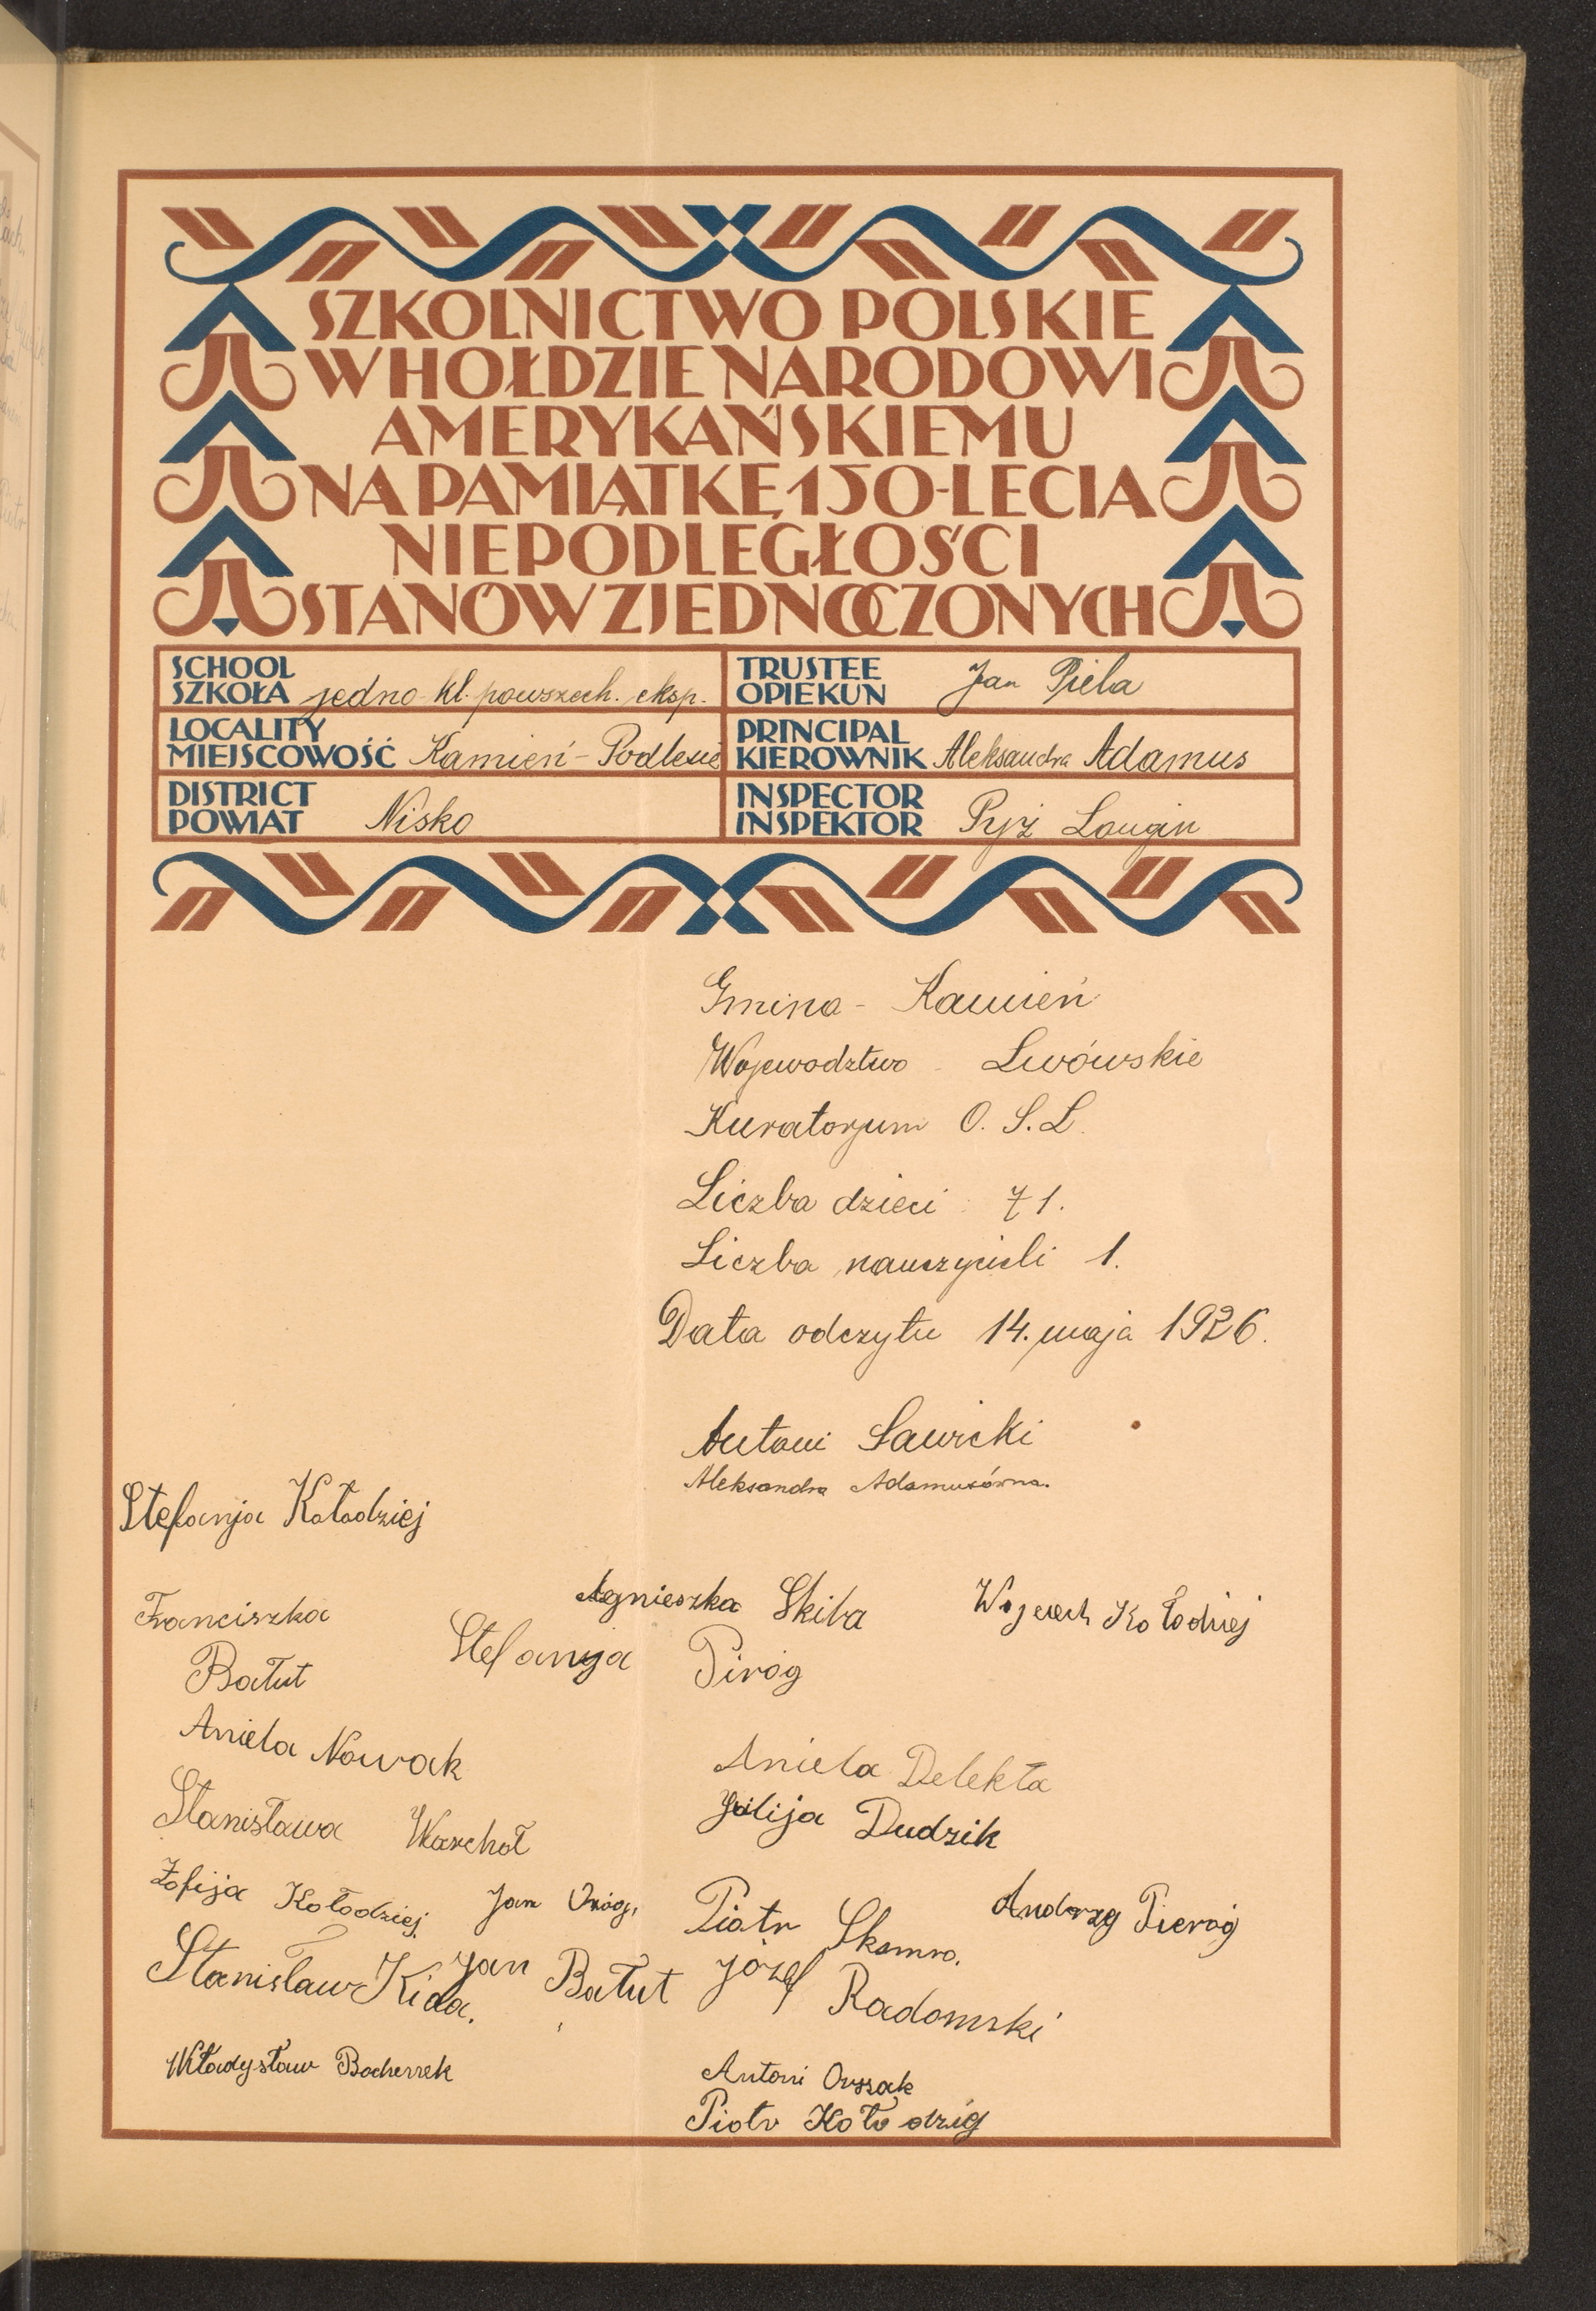 SZKOLNICTWO POLSKIE
W HOŁDZIE NARODOWI
AMERYKAŃSKIEMU
NA PAMIĄTKĘ 150-LECIA
NIEPODLEGŁOŚCI
STANÓW ZJEDNOCZONYCH
SCHOOL
SZKOŁA jedno-kl. powszech. eksp.
TRUSTEE
OPIEKUN Jan Piela
LOCALITY
MIEJSCOWOŚĆ Kamień-Podlesie
PRINCIPAL
KIEROWNIK Aleksandra Adamus
DISTRICT
POWIAT Nisko
INSPECTOR
INSPEKTOR Pyż Longin
Gmina - Kamień
Wojewodztwo - Lwówskie
Kuratorjum O. S. L.
Liczba dzieci : 71.
Liczba nauczycieli 1.
Data odczytu 14. maja 1926.
Antoni Sawicki
Aleksandra Adamusówna.
Stefanja Kołodziej
Agnieszka Skiba
Wojciech Kołodziej
Franciszka
Bałut
Stefanja Piróg
Aniela Nowak
Aniela Delekta
Stanisława Warchoł
Julija Dudzik
Zofija Kołodziej.
Jan
Piotr Skomro.
Andrzej Pieróg
Stanisław Kida.
Jan Bałut
Józef Radomski
Władysław
Antoni
Piotr Kołodziej